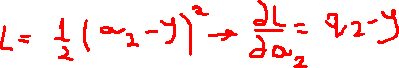 L = \frac{1}{2} (a_2 - y)^2 → \frac{∂L}{∂a_2} = a_2 - y